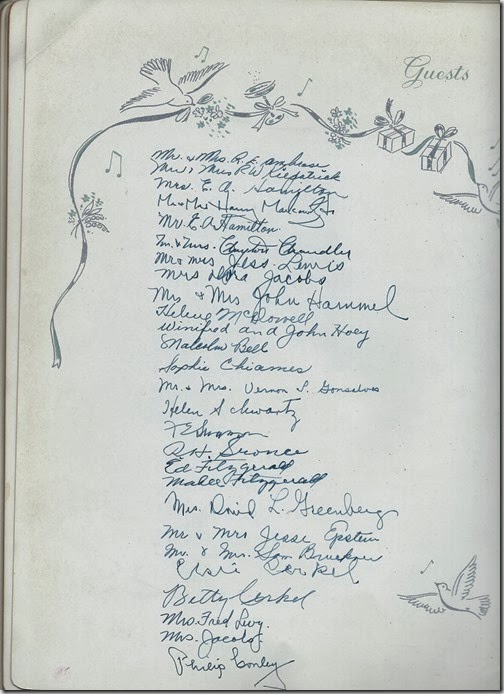 Guests
Mr. & Mrs. R. E. Ambrose
Mr & Mrs R W Kilpatrick
Mrs. E. A. Hamilton
Mr & Mrs Harry
Mr. E. A. Hamilton
Mr. & Mrs. Chandler
Mr & Mrs Jess. Lewis
Mrs Jacobs
Mr & Mrs John Hammel
Helene McDowell
Winifred and John Hoey
Malcolm Bell
Sophie Chiames
Mr. & Mrs. Vernon S. Gonsalves
Helen Schwartz
Ed Fitzgerald
Fitzgerald
Mrs. David L. Greenberg
Mr & Mrs Jesse Epstein
Mr. & Mrs. Sam Bruckner
Elsie Corkel
Betty Corkel
Mrs. Fred Levy.
Mrs. Jacobs
Philip Conley